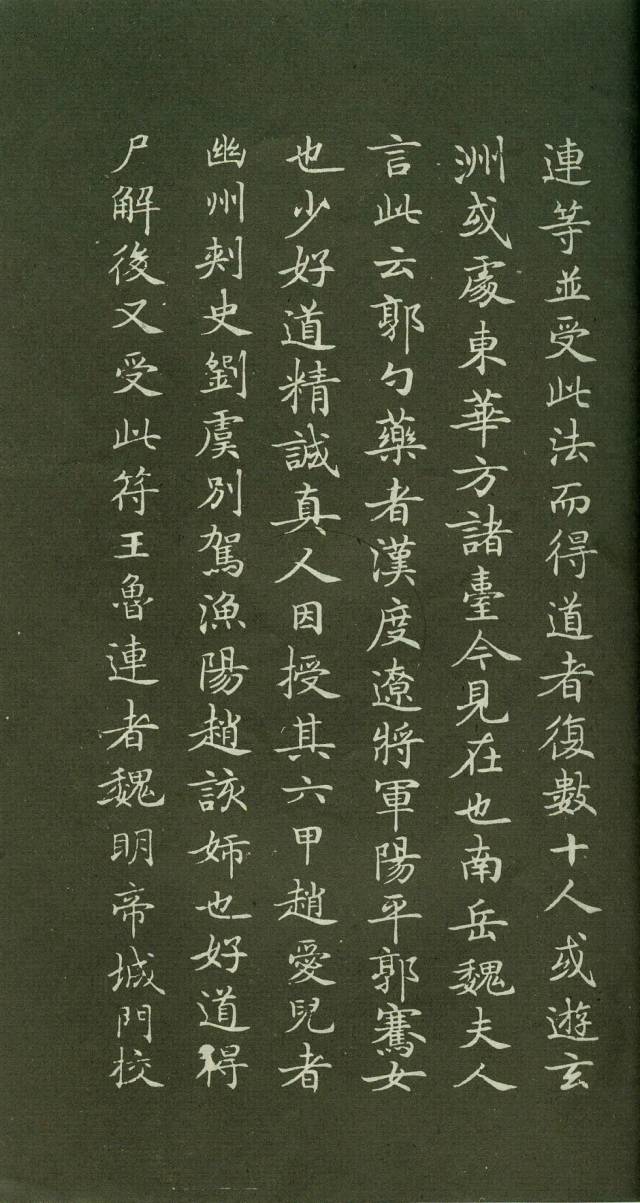 連等並受此法而得道者復數十人或遊玄
洲或處東華方諸臺今見在也南岳魏夫人
言此云郭勺藥者漢度遼將軍陽平郭騫女
也少好道精誠真人因授其六甲趙愛兒者
幽州刺史劉虞別駕漁陽趙該姉也好道得
尸解後又受此符王魯連者魏明帝城門校